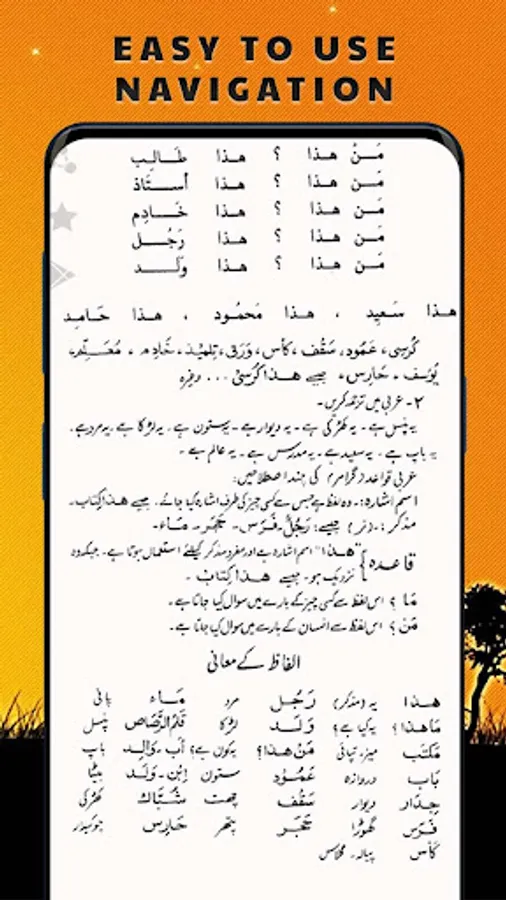 EASY TO USE
NAVIGATION
مَـنْ هذا ؟ هـذا طَـالِـب
مَـن هذا ؟ هـذا أُسـتَـاذ
مَـن هذا ؟ هـذا خَـادِم
مَـن هذا ؟ هـذا رَجُـل
مَـن هذا ؟ هـذا وَلَـد
هـذا سَعِيد ، هـذا مَحمُود ، هـذا حَـامِد
كُرسِی، عَمُود، سَقْف، كأس، وَرَق، تِلمِيذ، خَادِم، مُعَلِّم،
يُوسُف، حَارِس، جیسے هٰذا كُرسِیٌّ ... وغیرہ
۲۔ عربی میں ترجمہ کریں۔
یہ پنسل ہے۔ یہ کھڑکی ہے۔ یہ دیوار ہے۔ یہ ستون ہے۔ یہ لڑکا ہے۔ یہ مرد ہے۔
یہ باپ ہے۔ یہ سعید ہے۔ یہ مدرس ہے۔ یہ عالم ہے۔
عربی قواعد (گرامر) کی چند اصطلاحیں:
اسم اشارہ:۔ وہ لفظ ہے جس سے کسی چیز کی طرف اشارہ کیا جائے۔ جیسے هذا كِتَاب۔
مذکر:۔ (نر) جیسے: رَجُل، فَرَس۔ حَجَر۔ مَاء۔
قاعدہ } "هٰذا" اسم اشارہ ہے اور مفرد مذکر کیلئے استعمال ہوتا ہے۔ جبکہ وہ
نزدیک ہو۔ جیسے هٰذا كِتَاب۔
مَا ؟ اس لفظ سے کسی چیز کے بارے میں سوال کیا جاتا ہے۔
مَنْ ؟ اس لفظ سے انسان کے بارے میں سوال کیا جاتا ہے۔
الفاظ کے معانی
هـذا یہ (مذکر) رَجُـل مرد مَـاء پانی
مَاهذا؟ یہ کیا ہے؟ وَلَـد لڑکا قَلَمُ الرَّصَاص پنسل
مَكْتَب میز، تپائی مَنْ هذا؟ یہ کون ہے؟ أَب ۔ وَالِد باپ
بَاب دروازہ عَمُود ستون اِبْن ۔ وَلَد بیٹا
جِدَار دیوار سَقْف چھت شُبَّاك کھڑکی
فَرَس گھوڑا حَجَر پتھر حَارِس چوکیدار
كَأْس پیالہ۔ گلاس